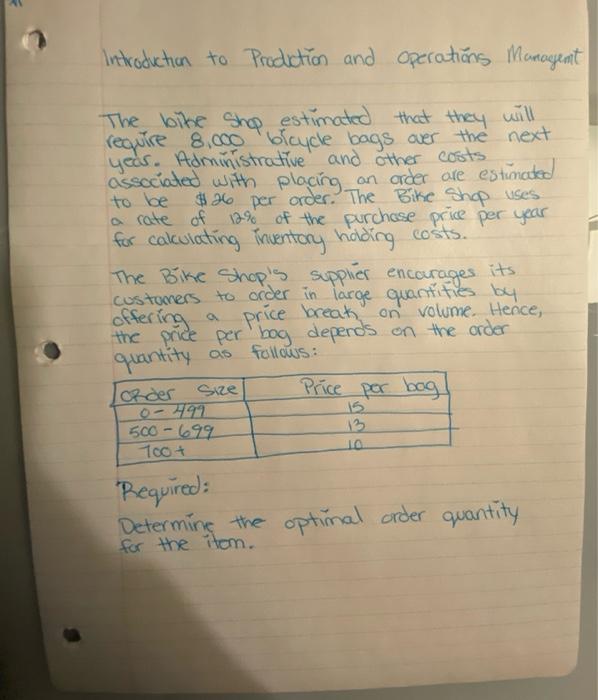 Introduction to Prodction and Operations Managemt
The bike Shop estimated that they will
require 8,000 bicycle bags over the next
year. Administrative and other costs
associated with placing an order are estimated
to be $26 per order. The Bike Shop uses
a rate of 12% of the purchase price per year
for calculating inventory holding costs.
The Bike Shop's supplier encourages its
customers to order in large quantities by
offering a price break on volume. Hence,
the price per bag depends on the order
quantity as follows:
Order Size Price per bag
0-499 15
500-699 13
700+ 10
Required:
Determine the optimal order quantity
for the item.